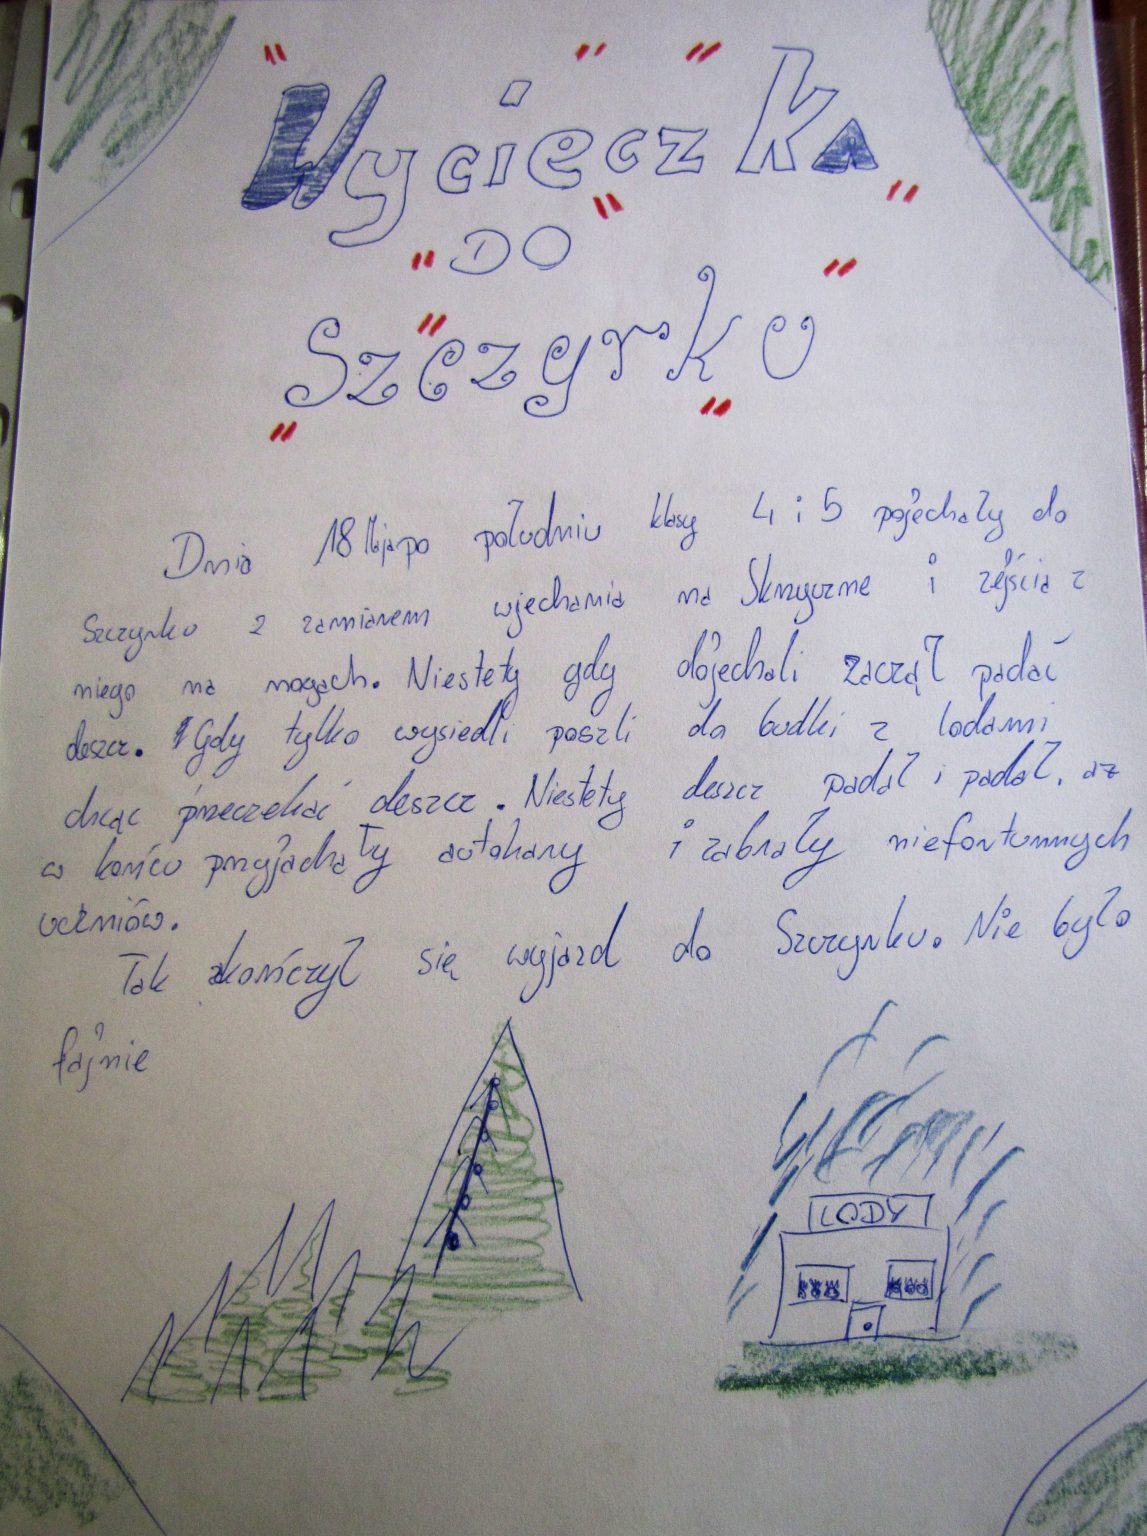 Wycieczka
DO
Szczyrku
Dnia 18 Maja po południu klasy 4 i 5 pojechały do
Szczyrku z zamiarem wjechania na Skrzyczne i zejścia z
niego na nogach. Niestety gdy dojechali zaczął padać
deszcz. Gdy tylko wysiedli poszli do budki z lodami
chcąc przeczekać deszcz. Niestety deszcz padał i padał, aż
w końcu przyjachały autokary i zabrały niefortunnych
uczniów.
Tak zkończył się wyjazd do Szczyrku. Nie było
fajnie
LODY